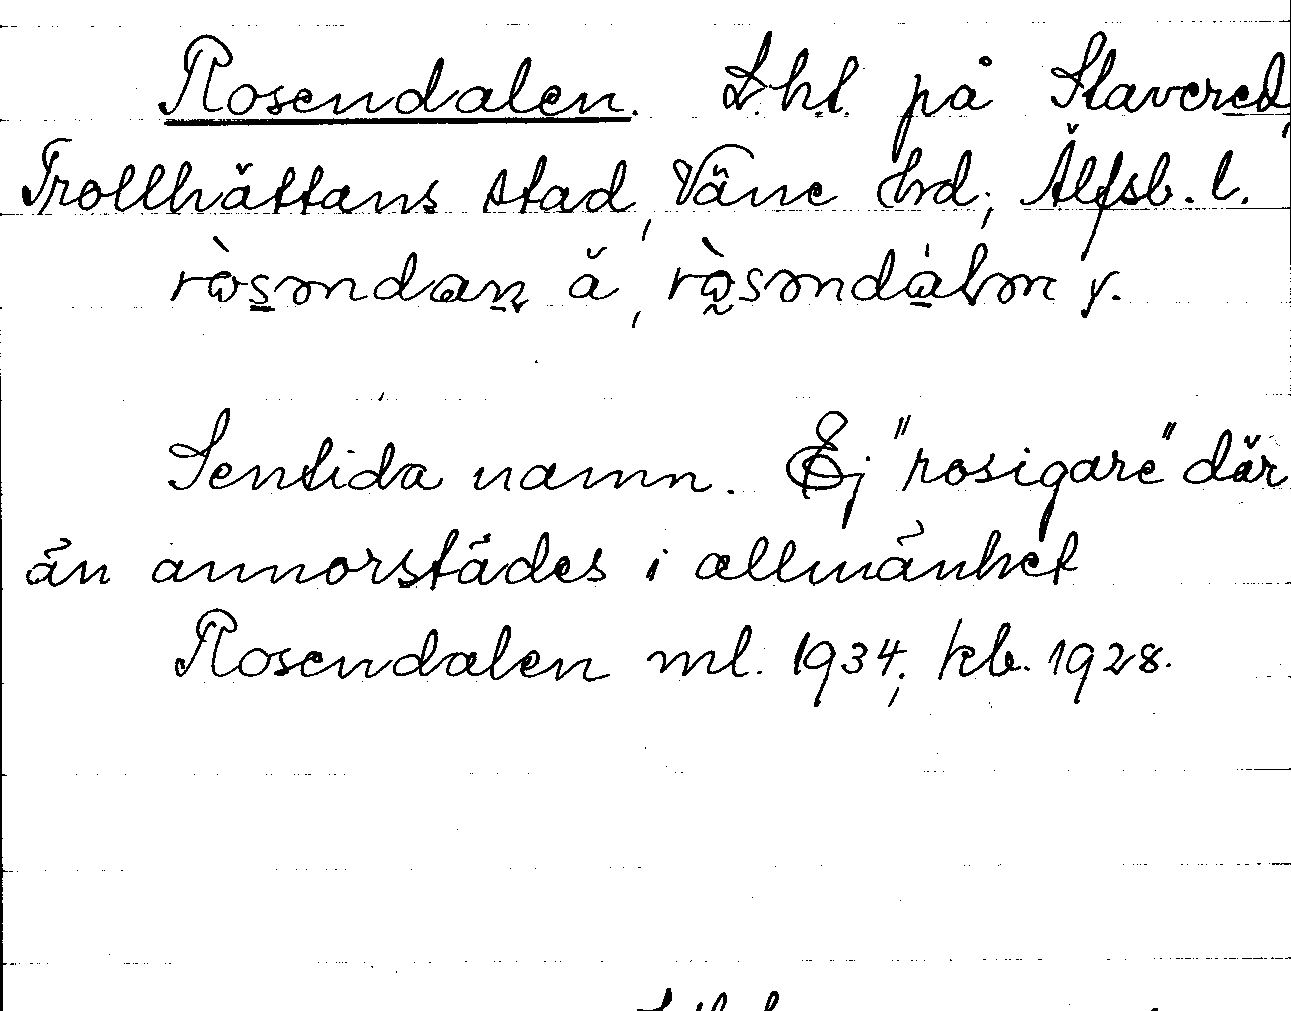 Rosendalen. Lht. på Slavered,
Trollhättans stad, Väne hd, Älfsb. l.
Sentida namn. Ej "rosigare" där
än annorstädes i allmänhet
Rosendalen ml. 1934, kb. 1928.